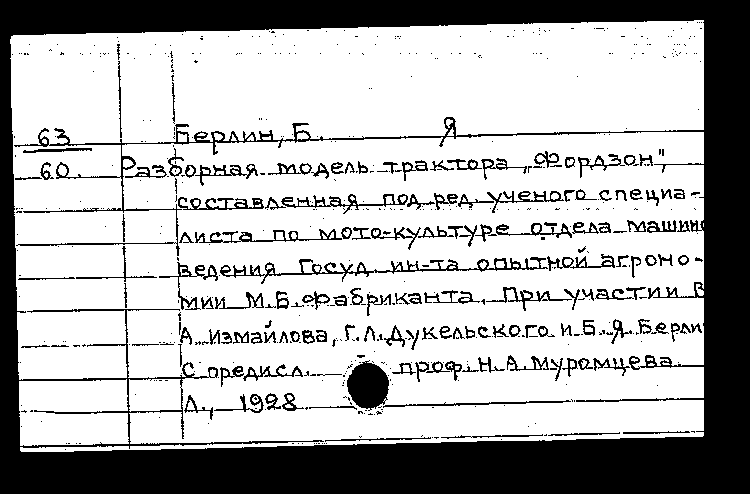 63 Берлин, Б. Я.
60. Разборная модель трактора „Фордзон",
составленная под ред. ученого специа-
листа по мото-культуре отдела машино
ведения Госуд. ин-та опытной агроно-
мии М.Б. Фабриканта. При участии В
А. Измайлова, Г.Л. Дукельского и Б.Я. Берли
С предисл. проф. Н.А. Муромцева.
Л., 1928